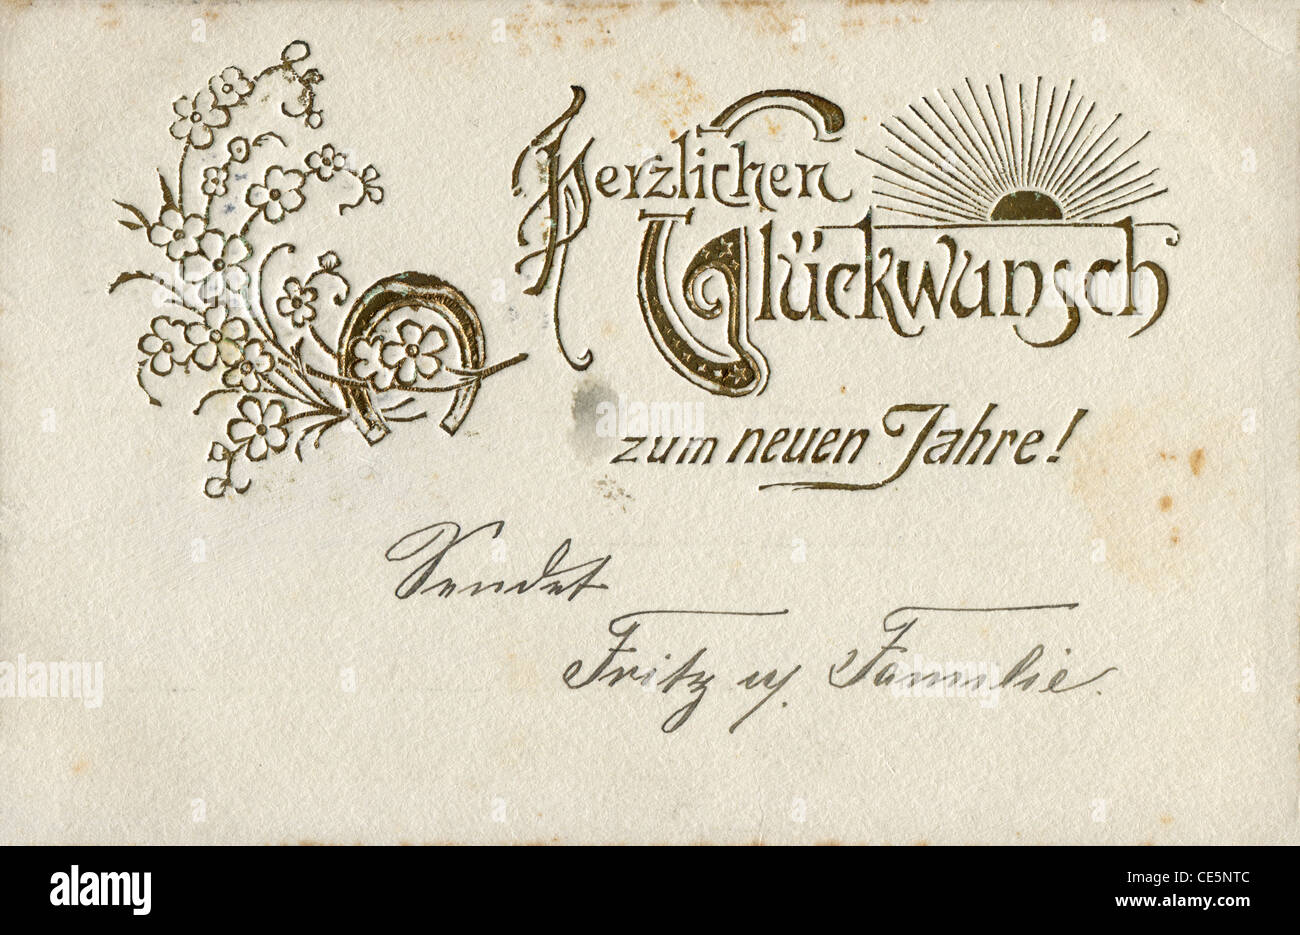 Herzlichen
Glückwunsch
zum neuen Jahre!
Sendet
Fritz u. Familie.
alamy
Image ID: CE5NTC
www.alamy.com